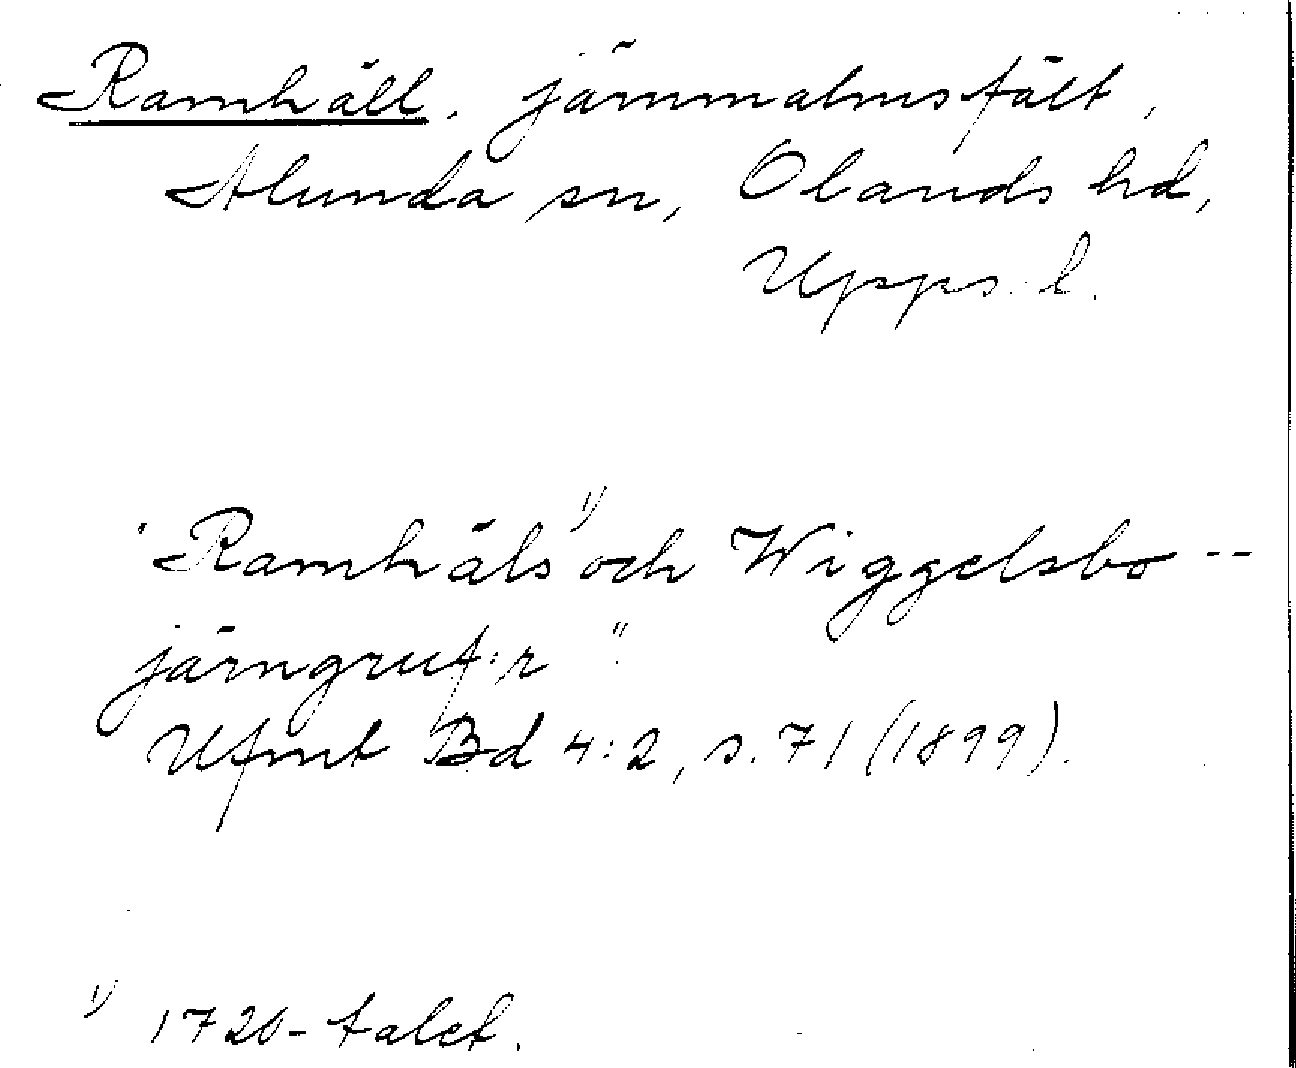 Ramhäll, järnmalmsfält,
Alunda sn, Olands hd,
Upps. l.
"Ramhäls ¹⁾ och Wiggelsbo --
järngruf:r"
Ufmt Bd 4:2, s. 71 (1899).
¹⁾ 1720-talet.